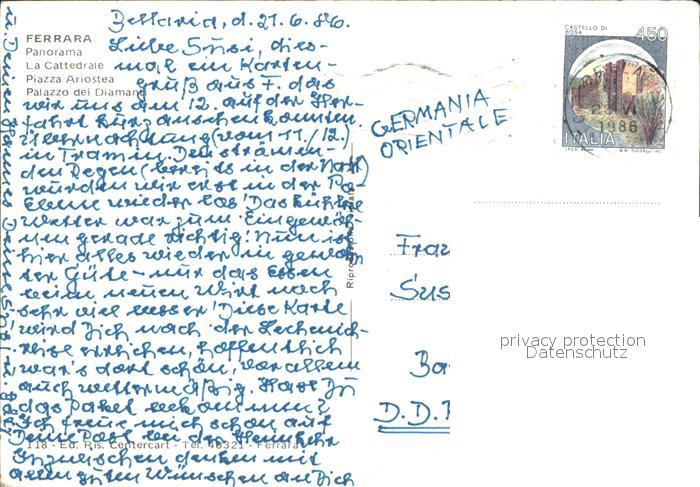 Bellaria, d. 21.6.86.
FERRARA
Panorama
La Cattedrale
Piazza Ariostea
Palazzo dei Diamanti
Liebe Susi, dies-
mal ein Karten-
gruß aus F. das
wir uns am 12. auf der Her-
fahrt kurz anschauen konnten.
Übernachtung (vom 11./12.)
in Tramin. Den strömen-
den Regen (bereits in der Nacht)
wurden wir erst in der Po-
Ebene wieder los! Das kühle
Wetter war zum Eingewöh-
nen gerade richtig! Nun ist
hier alles wieder in gewohn-
ter Güte - nur das Essen
beim neuen Wirt noch
sehr viel besser! Diese Karte
wird Dich nach der
reise erreichen, hoffentlich
war's dort schön, vor allem
auch wettermäßig. Hast Du
das Paket bekommen?
Ich freue mich schon auf
Deine Post bei der Heimkehr
Inzwischen denken mit
allen guten Wünschen an Dich
118 - Ed. Ris. Centercart - Tel. 40321 - Ferrara
CASTELLO DI
BOSA
450
1986
ITALIA
GERMANIA
ORIENTALE
Frau
Sus
Ba
D.D.R
privacy protection
Datenschutz